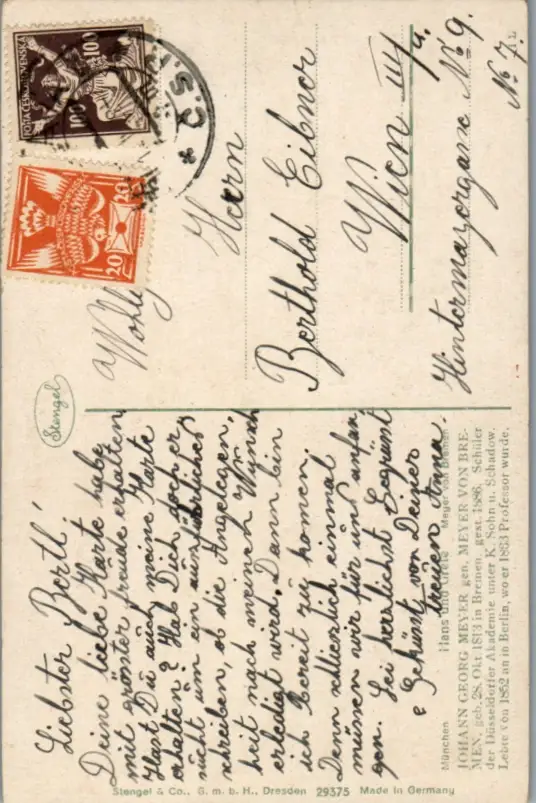 Liebster Bertl!
Deine liebe Karte habe
mit gröster freude erhalten
Hast Du auch meine Karte
erhalten? Hab Dich doch er
sucht um ein ausführliches
schreiben ob die Angelegen,
heit nach meinen Wunsch
erledigt wird. Dann bin
ich Bereit zu komen.
Denn schlieslich einmal
müssen wir für uns anfan
gen. Sei herzlichst Gegrüst
e Geküsst von Deiner
treuen Anna.
Wohlg
Herrn
Berthold Eibner
Wien III/a.
Hintermayergasse No 9.
No 7.
Stengel
POŠTA ČESKOSLOVENSKÁ
100 100
20 20
20 20
* Č.S.
München.
Hans und Grete
Meyer von Bremen
JOHANN GEORG MEYER, gen. MEYER VON BRE-
MEN, geb. 28. Okt 1813 in Bremen, gest. 1886. Schüler
der Düsseldorfer Akademie unter K. Sohn u. Schadow.
Lebte von 1852 an in Berlin, wo er 1863 Professor wurde.
Stengel & Co., G. m. b. H., Dresden 29375 Made in Germany